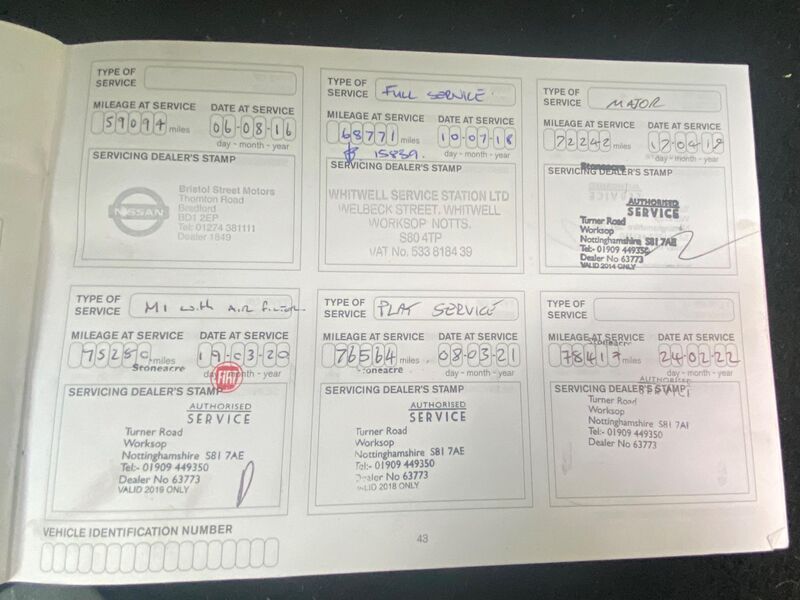 TYPE OF
SERVICE
MILEAGE AT SERVICE DATE AT SERVICE
59094 miles 06-08-16
day - month - year
SERVICING DEALER'S STAMP
NISSAN
Bristol Street Motors
Thornton Road
Bradford
BD1 2EP
Tel: 01274 381111
Dealer 1849
TYPE OF
SERVICE FULL SERVICE
MILEAGE AT SERVICE DATE AT SERVICE
68771 miles 10-07-18
day - month - year
15839.
SERVICING DEALER'S STAMP
WHITWELL SERVICE STATION LTD
WELBECK STREET, WHITWELL
WORKSOP NOTTS.
S80 4TP
VAT No. 533 8184 39
TYPE OF
SERVICE MAJOR
MILEAGE AT SERVICE DATE AT SERVICE
72242 miles 17-04-19
day - month - year
Stoneacre
SERVICING DEALER'S STAMP
AUTHORISED
SERVICE
Turner Road
Worksop
Nottinghamshire S81 7AE
Tel:- 01909 449350
Dealer No 63773
VALID 2014 ONLY
TYPE OF
SERVICE M1 with AIR filter.
MILEAGE AT SERVICE DATE AT SERVICE
75280 miles 19-03-20
Stoneacre day - month - year
FIAT
SERVICING DEALER'S STAMP
AUTHORISED
SERVICE
Turner Road
Worksop
Nottinghamshire S81 7AE
Tel:- 01909 449350
Dealer No 63773
VALID 2019 ONLY
TYPE OF
SERVICE PLAT SERVICE
MILEAGE AT SERVICE DATE AT SERVICE
76564 miles 08-03-21
toneacre day - month - year
SERVICING DEALER'S STAMP
AUTHORISED
SERVICE
Turner Road
Worksop
Nottinghamshire S81 7AE
Tel:- 01909 449350
Dealer No 63773
VALID 2018 ONLY
TYPE OF
SERVICE
MILEAGE AT SERVICE DATE AT SERVICE
Stoneacre
78417 miles 24-02-22
day - month - year
AUTHORISED
SERVICING DEALER'S STAMP
Turner Road
Worksop
Nottinghamshire S81 7AE
Tel:- 01909 449350
Dealer No 63773
VEHICLE IDENTIFICATION NUMBER
43